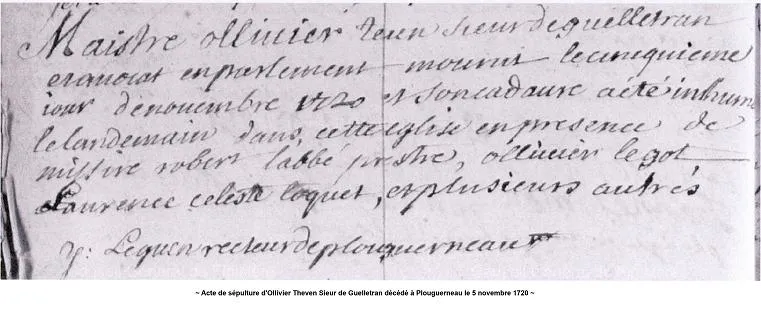 Maistre ollivier teven sieur de quelletran
et avocat en parlement mourut le cinquieme
iour de novembre 1720 et son cadavre a été inhumé
le landemain dans cette eglise en presence de
missire robert labbé prestre, ollivier le got
Laurence celeste loquet, et plusieurs autres
y: Lequen recteur de plouguerneau
~ Acte de sépulture d'Ollivier Theven Sieur de Guelletran décédé à Plouguerneau le 5 novembre 1720 ~